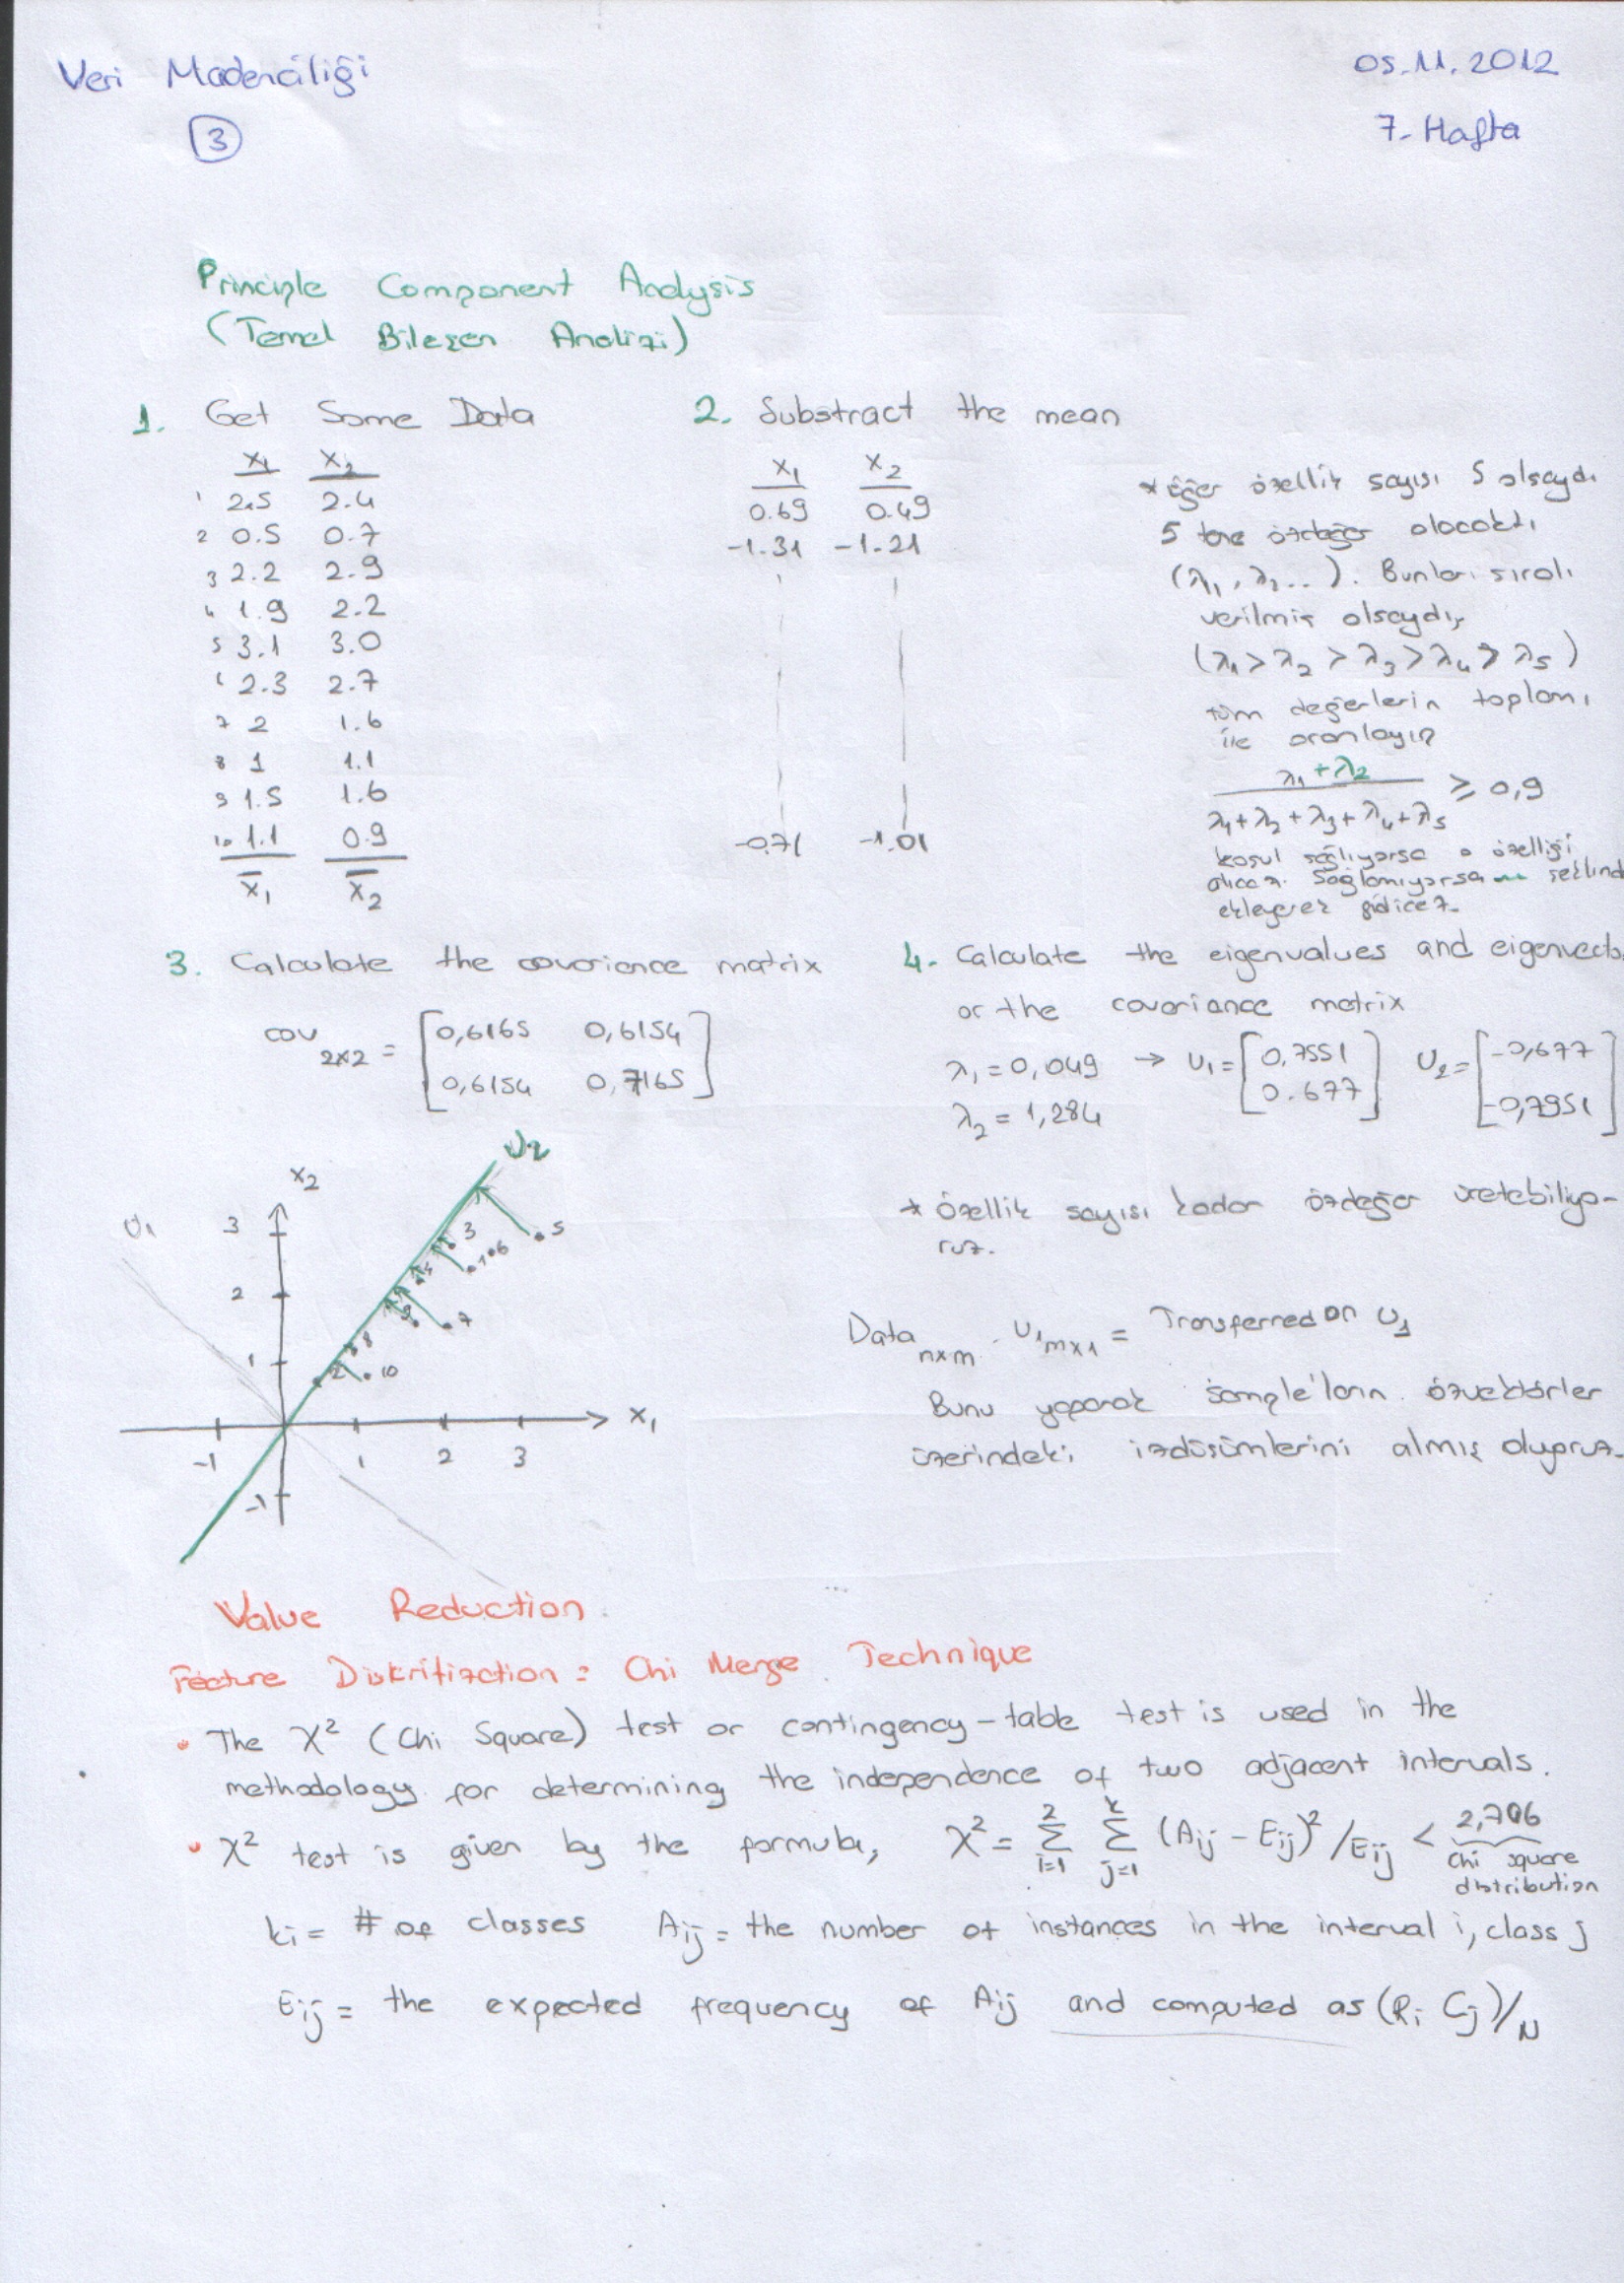 Veri Madenciliği
05.11.2012
3
7. Hafta
Principle Component Analysis
(Temel Bileşen Analizi)
1. Get Some Data
x1 x2
1 2.5 2.4
2 0.5 0.7
3 2.2 2.9
4 1.9 2.2
5 3.1 3.0
6 2.3 2.7
7 2 1.6
8 1 1.1
9 1.5 1.6
10 1.1 0.9
x̄1 x̄2
2. Substract the mean
x1 x2
0.69 0.49
-1.31 -1.21
-0.71 -1.01
* Eğer özellik sayısı 5 olsaydı
5 tane özdeğer olacaktı
(λ1, λ2...). Bunları sıralı
verilmiş olsaydı,
(λ1 > λ2 > λ3 > λ4 > λ5)
tüm değerlerin toplamı
ile oranlayıp
λ1 + λ2
≥ 0,9
λ1 + λ2 + λ3 + λ4 + λ5
koşul sağlıyorsa o özelliği
alıcaz. Sağlamıyorsa şeklind
ekleyerek gidicez.
3. Calculate the covarience matrix
cov 2x2 = [0,6165 0,6154
0,6154 0,7165]
4. Calculate the eigenvalues and eigenvecto
or the covariance matrix
λ1 = 0,049 → U1 = [0,7551 0.677] U2 = [-0,677 -0,7951]
λ2 = 1,284
* Özellik sayısı kadar özdeğer üretebiliyo-
ruz.
Data nxm . U1 mx1 = Transferred on U1
Bunu yaparak sample'ların özvektörler
üzerindeki izdüşümlerini almış oluyoruz.
U2
x2
U1
3
2
1
-1
-1 1 2 3
x1
3
5
6
7
8
10
2
Value Reduction
Feature Diskritization: Chi Merge Technique
• The X² (Chi Square) test or contingency-table test is used in the
methodology for determining the independence of two adjacent intervals.
• X² test is given by the formula, X² = Σ i=1 2 Σ j=1 k (Aij - Eij)² / Eij < 2,706
Chi square
distribution
ki = # of classes Aij = the number of instances in the interval i, class j
Eij = the expected frequency of Aij and computed as (Ri Cj)/N